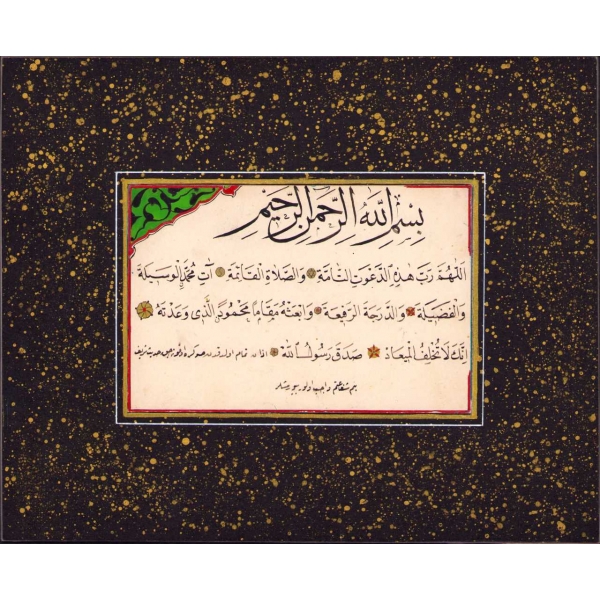 بِسْمِ اللّٰهِ الرَّحْمٰنِ الرَّحِيْمِ
اَللّٰهُمَّ رَبَّ هٰذِهِ الدَّعْوَتِ التَّامَّةِ وَالصَّلَاةِ الْقَائِمَةِ اٰتِ مُحَمَّدًا الْوَسِيلَةَ
وَالْفَضِيلَةَ وَالدَّرَجَةَ الرَّفِيعَةَ وَابْعَثْهُ مَقَامًا مَحْمُودًا الَّذِى وَعَدْتَهُ
اِنَّكَ لَا تُخْلِفُ الْمِيعَادَ صَدَقَ رَسُولُ اللّٰه اذان تمام اولدقدن صكره